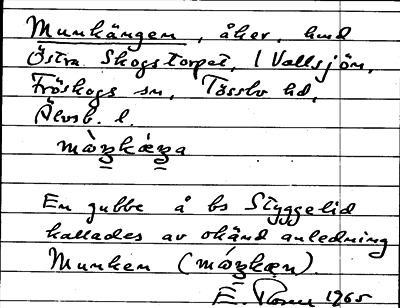 Munkängen, åker, hmd
Östra Skogstorpet, l Vallsjön,
Fröskogs sn, Tössbo hd,
Älvsb. l.
En gubbe å bs Styggelid
kallades av okänd anledning
Munken
E. 1965